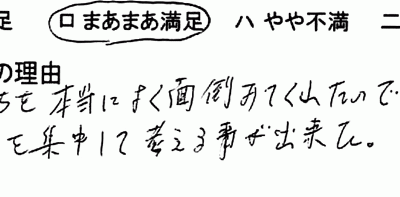 足 ロ まあまあ満足 ハ やや不満 ニ
の理由
ちを本当によく面倒みてくれたいで
を集中して考える事が出来た。